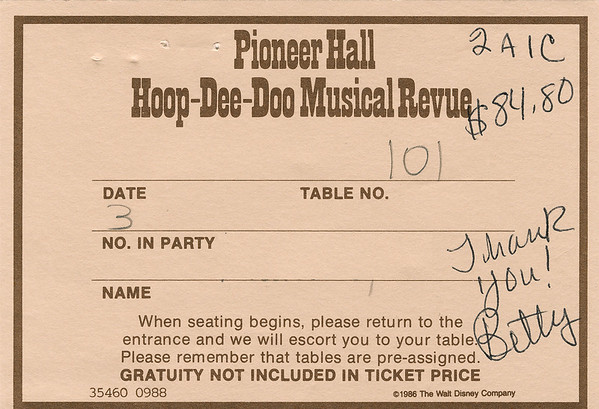 Pioneer Hall
Hoop-Dee-Doo Musical Revue
2 A 1 C
$84.80
101
DATE TABLE NO.
3
NO. IN PARTY
NAME
Thank
you!
Betty
When seating begins, please return to the
entrance and we will escort you to your table.
Please remember that tables are pre-assigned.
GRATUITY NOT INCLUDED IN TICKET PRICE
35460 0988 ©1986 The Walt Disney Company